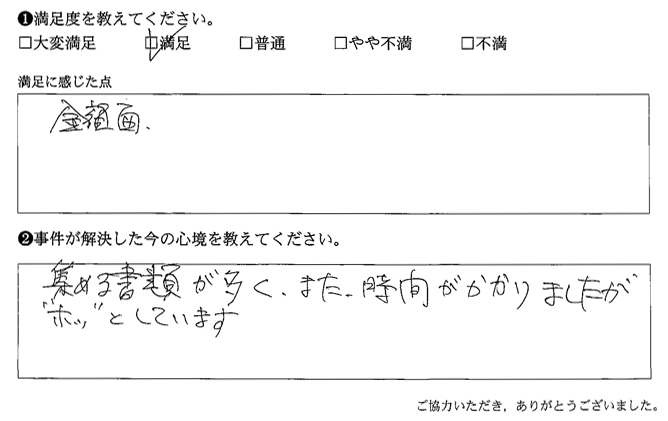 ❶満足度を教えてください。
□大変満足 □満足 □普通 □やや不満 □不満
満足に感じた点
金額面、
❷事件が解決した今の心境を教えてください。
集める書類が多く、また、時間がかかりましたが
"ホッ"としています
ご協力いただき，ありがとうございました。